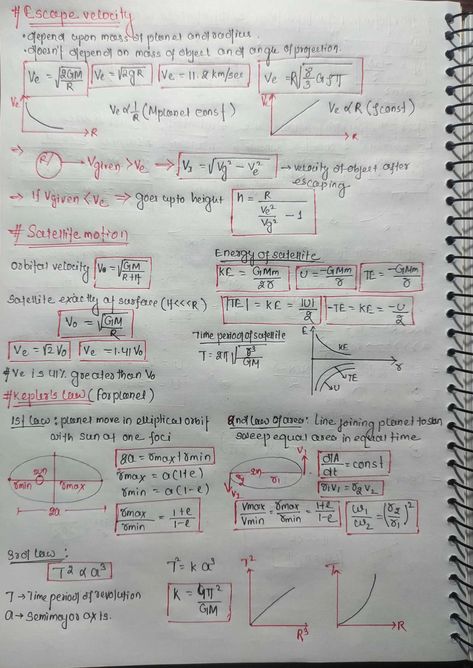 # Escape velocity
• depend upon mass of planet and radius.
• doesn't depend on mass of object and angle of projection.
Ve = √(2GM/R) Ve = √2gR Ve = 11.2 km/sec Ve = R√(8/3 Gρπ)
Ve R Ve ∝ 1/R (Mplanet const) V R Ve ∝ R (ρ const)
⇒ R Vgiven > Ve ⇒ V = √(Vg² − Ve²) → velocity of object after
escaping
⇒ if Vgiven < Ve ⇒ goes upto height h = R / (Ve²/Vg² − 1)
# Satellite motion
Orbital velocity Vo = √(GM/R+H)
Energy of satellite
KE = GMm/2r U = −GMm/r TE = −GMm/r
Satellite exactly at surface (H<<<R)
Vo = √(GM/R)
|TE| = KE = |U|/2 −TE = KE = −U/2
Ve = √2 Vo Ve = 1.41 Vo
Time period of satellite
T = 2π√(r³/GM)
E KE r TE U
# Ve is 41% greater than Vo
# Kepler's law (For planet)
1st law : planet move in elliptical orbit
with sun at one foci
2nd law of area : Line joining planet to sun
sweep equal area in equal time
sun rmin rmax 2a
2a = rmax + rmin
rmax = a(1+e)
rmin = a(1−e)
rmax/rmin = 1+e/1−e
r2 r1 V1 V2
dA/dt = const
r1v1 = r2v2
Vmax/Vmin = rmax/rmin = 1+e/1−e
ω1/ω2 = (r2/r1)²
3rd law :
T² ∝ a³
T → Time period of revolution
a → Semimajor axis.
T² = k a³
K = 4π²/GM
T² R³
T R